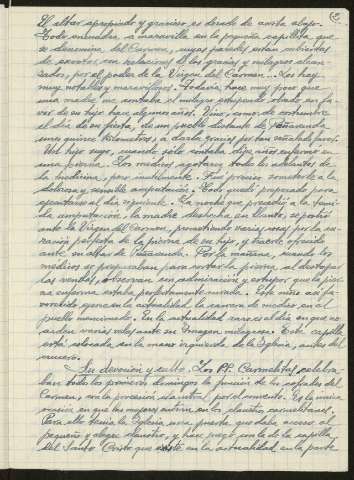 El altar apropiado y gracioso es dorado de arriba abajo.
Todo encuadra a maravilla en la pequeña capilla que
se denomina del Carmen, cuyas paredes están cubiertas
de exvotos, con relaciones de las gracias y milagros alcan-
zados, por el poder de la Virgen del Carmen... Los hay
muy notables y maravillosos. Todavía hace muy poco que
una madre me contaba el milagro estupendo obrado en fa-
vor de su hijo hace algunos años. Vino, como de costumbre
el día de su fiesta, de un pueblo distante de Peñaranda
unos quince kilómetros, a darle gracias por tan señalado favor.
Un hijo suyo, cuando sólo contaba doce años enfermó de
una pierna. Los médicos agotaron todos los adelantos de
la medicina, pero inutilmente. Fué preciso someterle a la
dolorosa y sensible amputación. Todo quedó preparado para
ejecutarse al día siguiente. La noche que precedió a la temi-
da amputación, la madre deshecha en llanto, se postró
ante la Virgen del Carmen, prometiendo varias cosas por la cu-
ración perfecta de la pierna de su hijo, y traerle ofrecido
ante su altar de Peñaranda. Por la mañana, cuando los
médicos se preparaban para cortar la pierna, al destapar
las vendas, observan con admiración y estupor, que la pier-
na enferma estaba perfectamente curada. Este niño así fa-
vorecido ejerce en la actualidad la carrera de médico en el
pueblo mencionado. En la actualidad raro es el día en que no
arden varias velas ante su Imagen milagrosa. Esta capilla
está colocada en la mano izquierda de la Iglesia, antes del
crucero.
Su devoción y culto. Los PP. Carmelitas celebra-
ban todos los primeros domingos la función de los cofrades del
Carmen, con la procesión claustral por el convento. Es la única
ocasión en que las mujeres entran en los claustros carmelitanos.
Para ello tenía la Iglesia una puerta que daba acceso al
pequeño y alegre claustro, y hace juego con la de la capilla
del Santo Cristo que existe en la actualidad en la parte